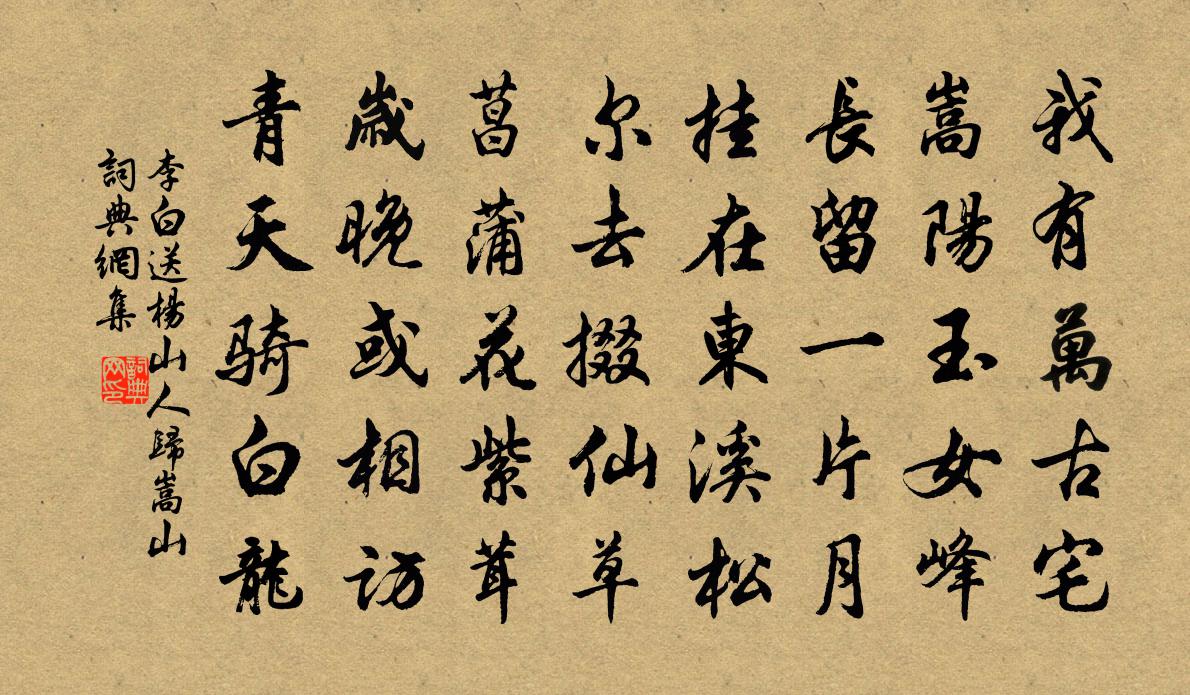 我有萬古宅
嵩陽玉女峰
長留一片月
挂在東溪松
尔去掇仙草
菖蒲花紫茸
歲晚或相訪
青天騎白龍
李白送楊山人歸嵩山
詞典網集
詞典网印